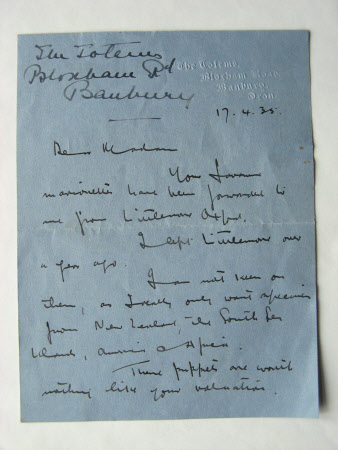 The Totems
Bloxham Rd
Banbury
The Totems,
Bloxham Road,
Banbury,
Oxon.
17.4.35.
Dear Madam
Your Javan
marionettes have been forwarded to
me from Littlemore Oxford.
I left Littlemore over
a year ago.
I am not keen on
them, as I really only want specimens
from New Zealand, the South Sea
Islands, America & Africa.
These puppets are worth
nothing like your valuation.